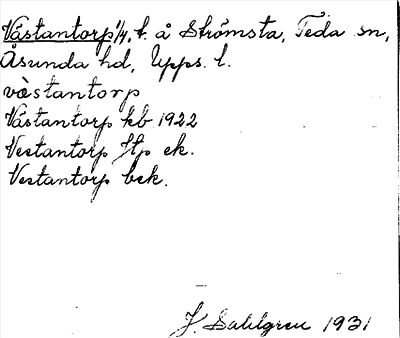 Västantorp 1/4, t. å Strömsta, Teda sn,
Åsunda hd, Upps. l.
vàstantorp
Västantorp kb 1922
Vestantorp Jtp ek.
Vestantorp bek.
J. Sahlgren 1931